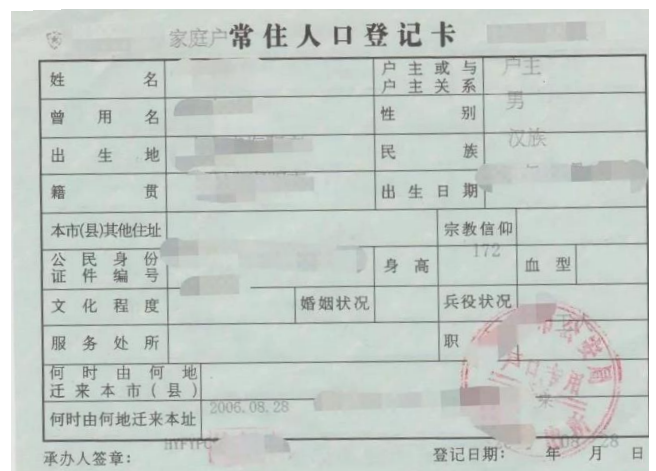 家庭户 常住人口登记卡
姓 名 户主或与户主关系 户主
曾用名 性别 男
出生地 民族 汉族
籍贯 出生日期
本市(县)其他住址 宗教信仰
公民身份证件编号 身高 172 血型
文化程度 婚姻状况 兵役状况
服务处所 职
何时由何地迁来本市(县)
何时由何地迁来本址 2006.08.28
承办人签章: 登记日期: 年 08 月 28 日
公安局
户口专用